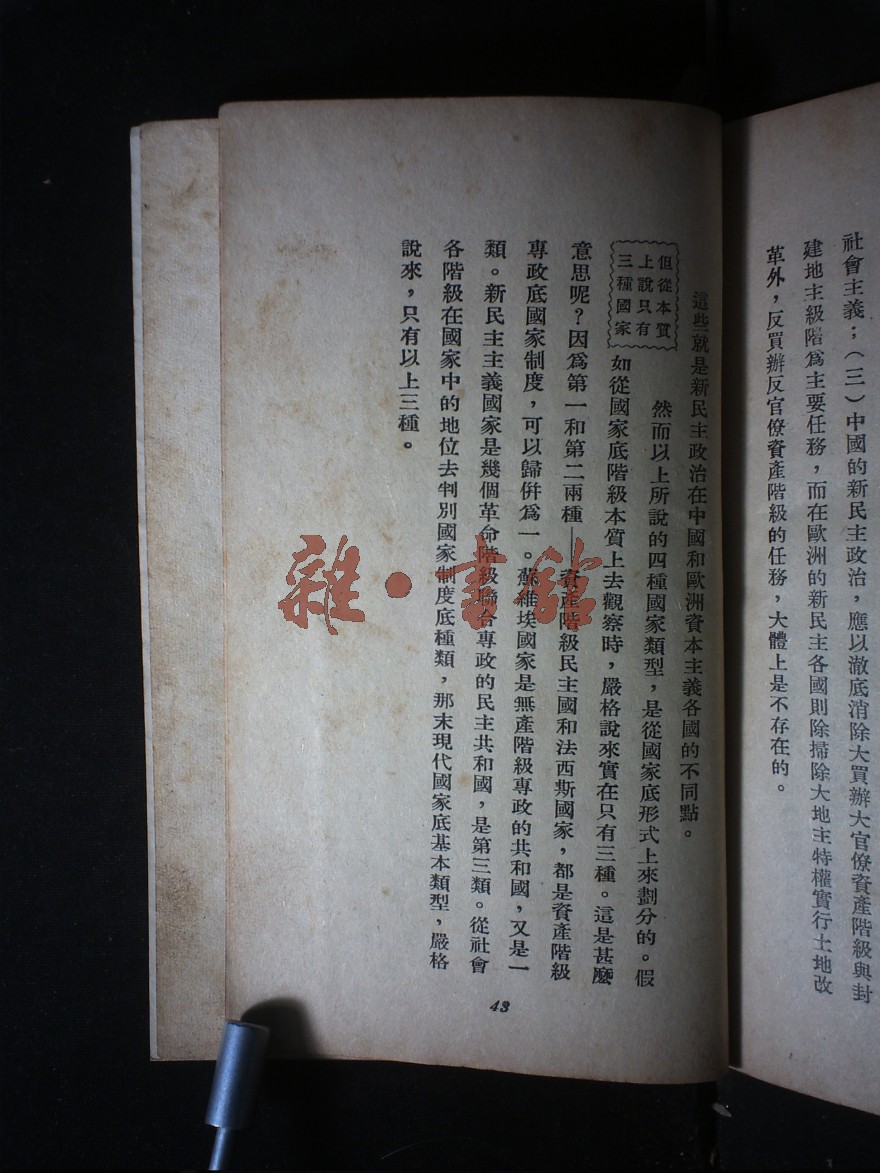 社會主義；（三）中國的新民主政治，應以澈底消除大買辦大官僚資產階級與封
建地主級階爲主要任務，而在歐洲的新民主各國則除掃除大地主特權實行土地改
革外，反買辦反官僚資產階級的任務，大體上是不存在的。
這些就是新民主政治在中國和歐洲資本主義各國的不同點。
但從本質
上說只有
三種國家
然而以上所說的四種國家類型，是從國家底形式上來劃分的。假
如從國家底階級本質上去觀察時，嚴格說來實在只有三種。這是甚麼
意思呢？因爲第一和第二兩種——資產階級民主國和法西斯國家，都是資產階級
專政底國家制度，可以歸併爲一。蘇維埃國家是無產階級專政的共和國，又是一
類。新民主主義國家是幾個革命階級聯合專政的民主共和國，是第三類。從社會
各階級在國家中的地位去判別國家制度底種類，那末現代國家底基本類型，嚴格
說來，只有以上三種。
43
雜·書館